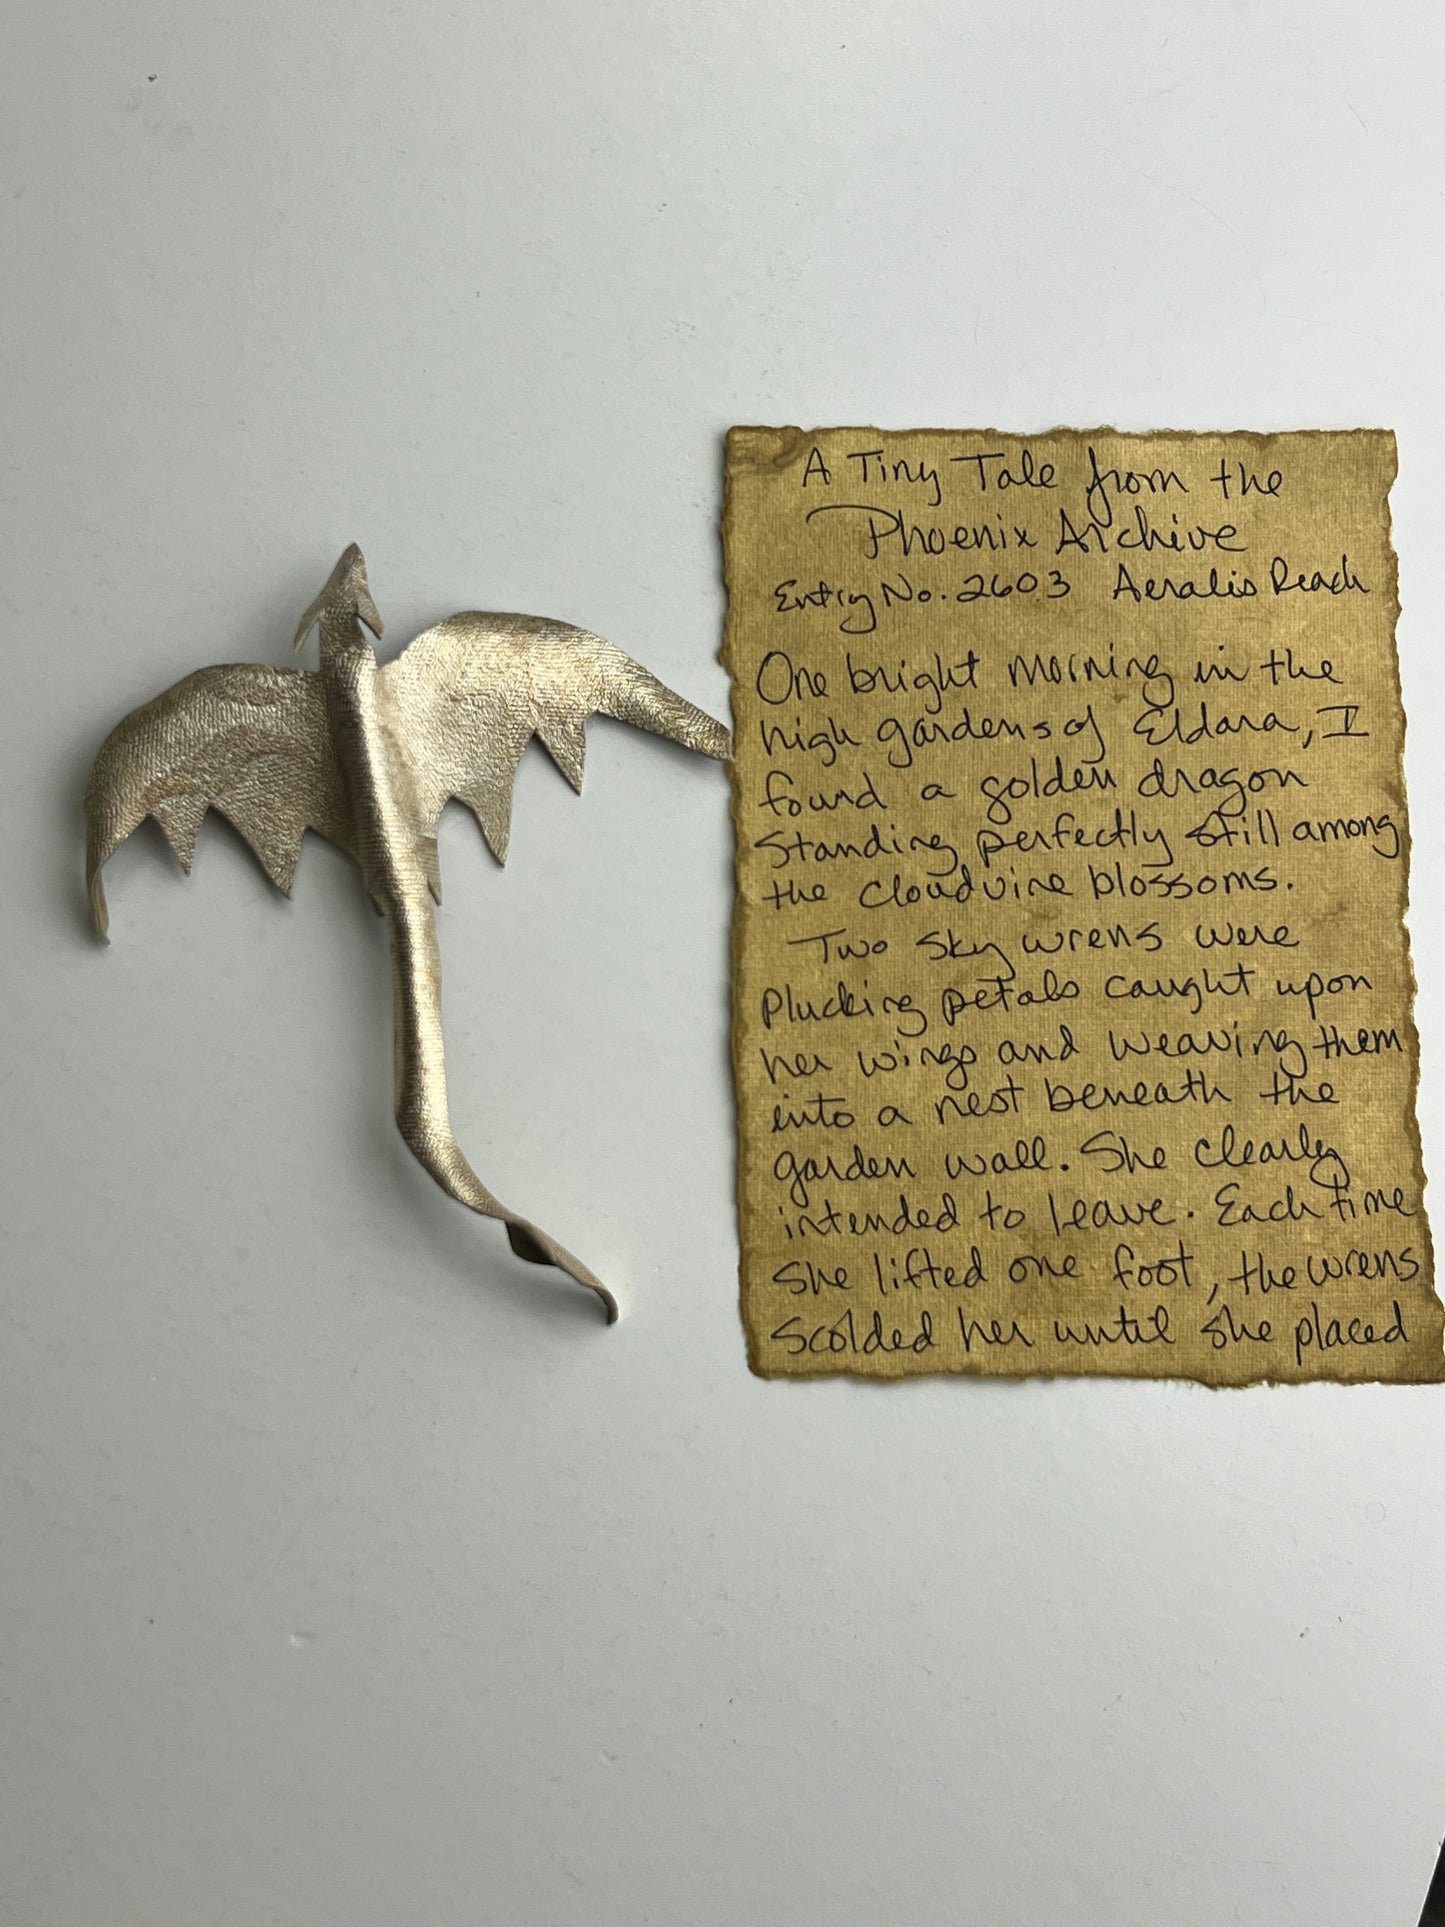 A Tiny Tale from the
Phoenix Archive
Entry No. 2603 Aeralis Reach
One bright morning in the
high gardens of Eldara, I
found a golden dragon
standing perfectly still among
the cloudvine blossoms.
Two sky wrens were
plucking petals caught upon
her wings and weaving them
into a nest beneath the
garden wall. She clearly
intended to leave. Each time
she lifted one foot, the wrens
scolded her until she placed